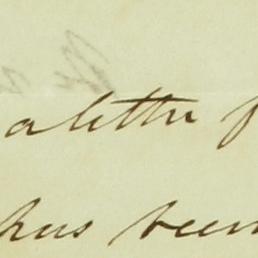 a letter
has been